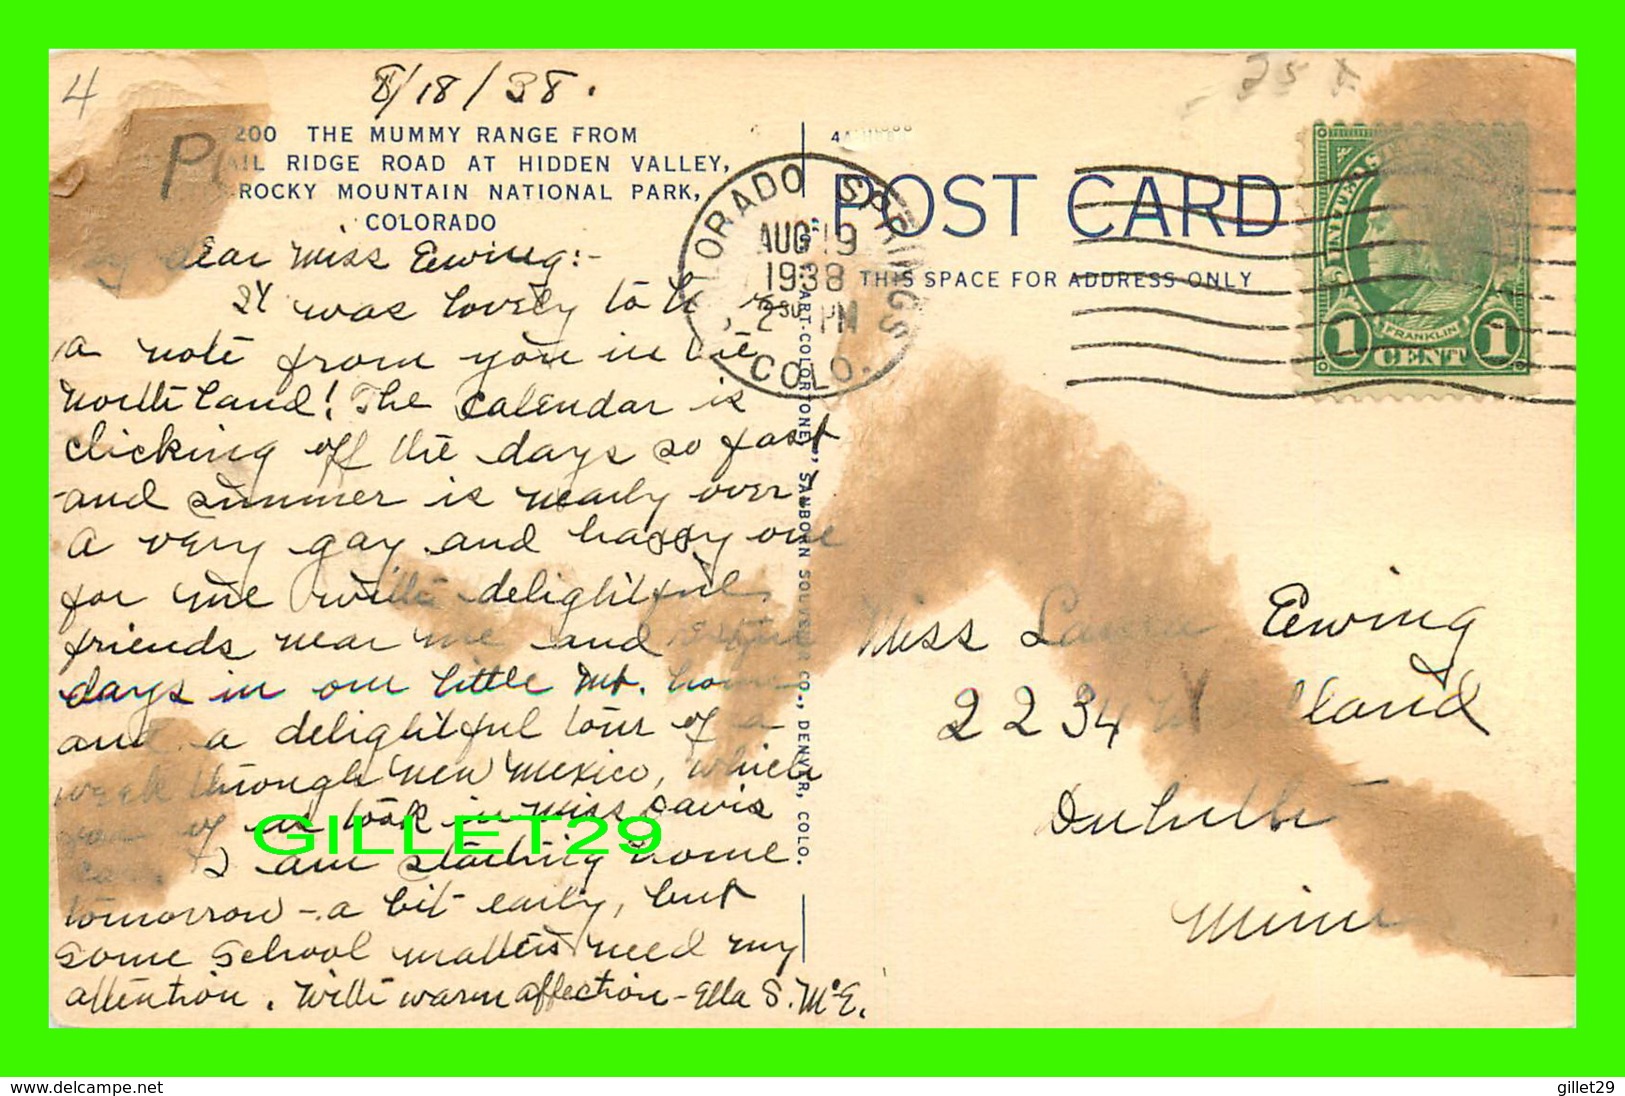 4
8/18/38.
25
200 THE MUMMY RANGE FROM
RIDGE ROAD AT HIDDEN VALLEY,
ROCKY MOUNTAIN NATIONAL PARK,
COLORADO
dear Miss Ewing:-
It was lovely to
a note from you in the
north land! The calendar is
clicking off the days so fast
and summer is nearly over,
a very gay and happy one
for me with delightful
friends near me and
days in our little Mt. home
and a delightful tour of a
week through New Mexico, which
of us took in Miss Davis
car. I am starting home
tomorrow - a bit early, but
some school matters need my
attention. With warm affection - Ella S. McE.
COLORADO SPRINGS
AUG 19
1938
2 30 PM
COLO.
POST CARD
THIS SPACE FOR ADDRESS ONLY
UNITED STATES
FRANKLIN
1 CENT 1
"ART-COLORTONE", SANBORN SOUVENIR CO., DENVER, COLO.
Miss Laura Ewing
2234 Woodland
Duluth
Minn
GILLET29
www.delcampe.net
gillet29